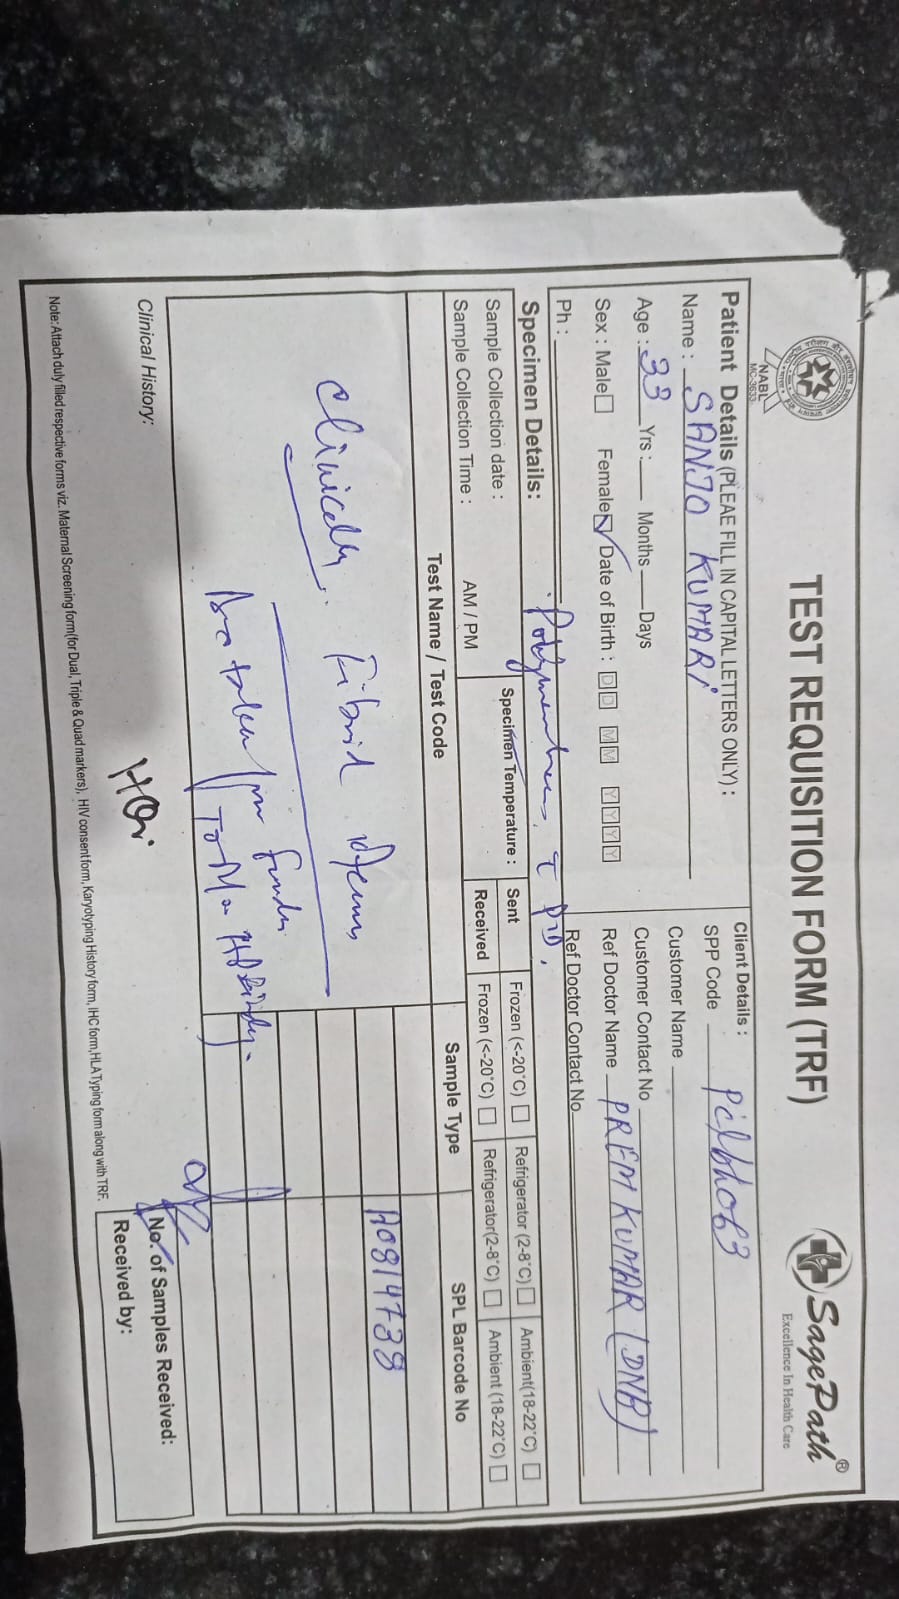 TEST REQUISITION FORM (TRF)
NABL
MC-3633
SagePath®
Excellence In Health Care
Patient Details (PLEAE FILL IN CAPITAL LETTERS ONLY) :
Name : SANJO KUMARI
Age : 33 Yrs : Months Days
Sex : Male Female Date of Birth : DD MM YYYY
Ph :
Client Details :
SPP Code
Customer Name
Customer Contact No
Ref Doctor Name PREM KUMAR (DNB)
Ref Doctor Contact No
Specimen Details:
Sample Collection date :
Sample Collection Time : AM / PM
Specimen Temperature :
Sent Frozen (<-20°C) Refrigerator (2-8°C) Ambient(18-22°C)
Received Frozen (<-20°C) Refrigerator(2-8°C) Ambient (18-22°C)
Test Name / Test Code Sample Type SPL Barcode No
A0814738
Clinically : Fibroid
taken
Clinical History:
No. of Samples Received:
Received by:
Note: Attach duly filled respective forms viz. Maternal Screening form(for Dual, Triple & Quad markers), HIV consent form, Karyotyping History form, IHC form, HLA Typing form along with TRF.